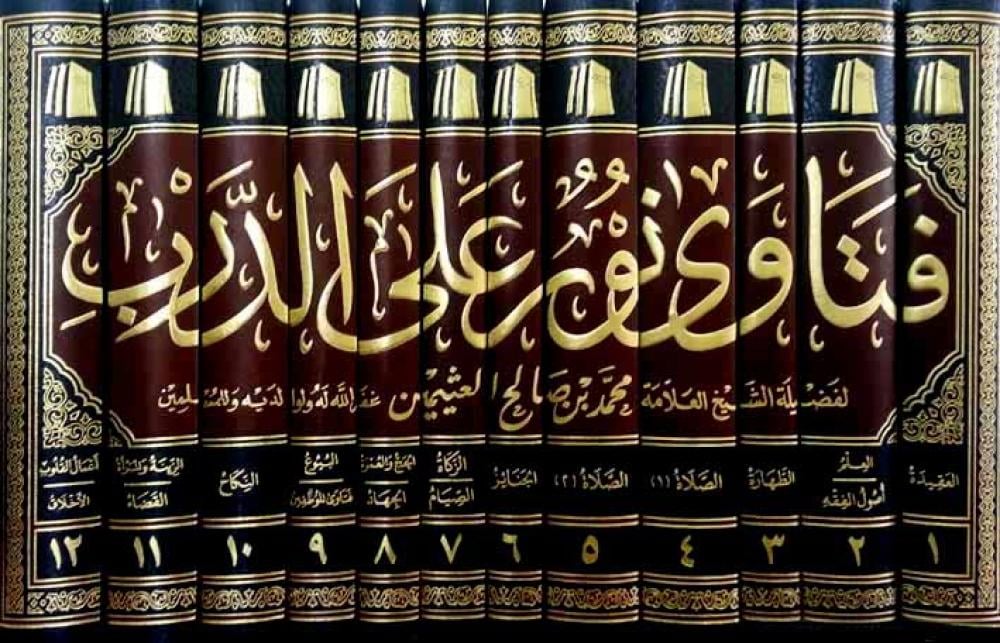 فَتَاوَى نُورٌ عَلَى الدَّرْبِ
لفضيلة الشيخ العلامة محمد بن صالح العثيمين غفر الله له ولوالديه وللمسلمين
العقيدة
العلم
أصول الفقه
الطهارة
الصلاة (١)
الصلاة (٢)
الجنائز
الزكاة
الصيام
الحج والعمرة
الجهاد
البيوع
فتاوى للموظفين
النكاح
القضاة
أعمال القلوب
الأخلاق
١ ٢ ٣ ٤ ٥ ٦ ٧ ٨ ٩ ١٠ ١١ ١٢